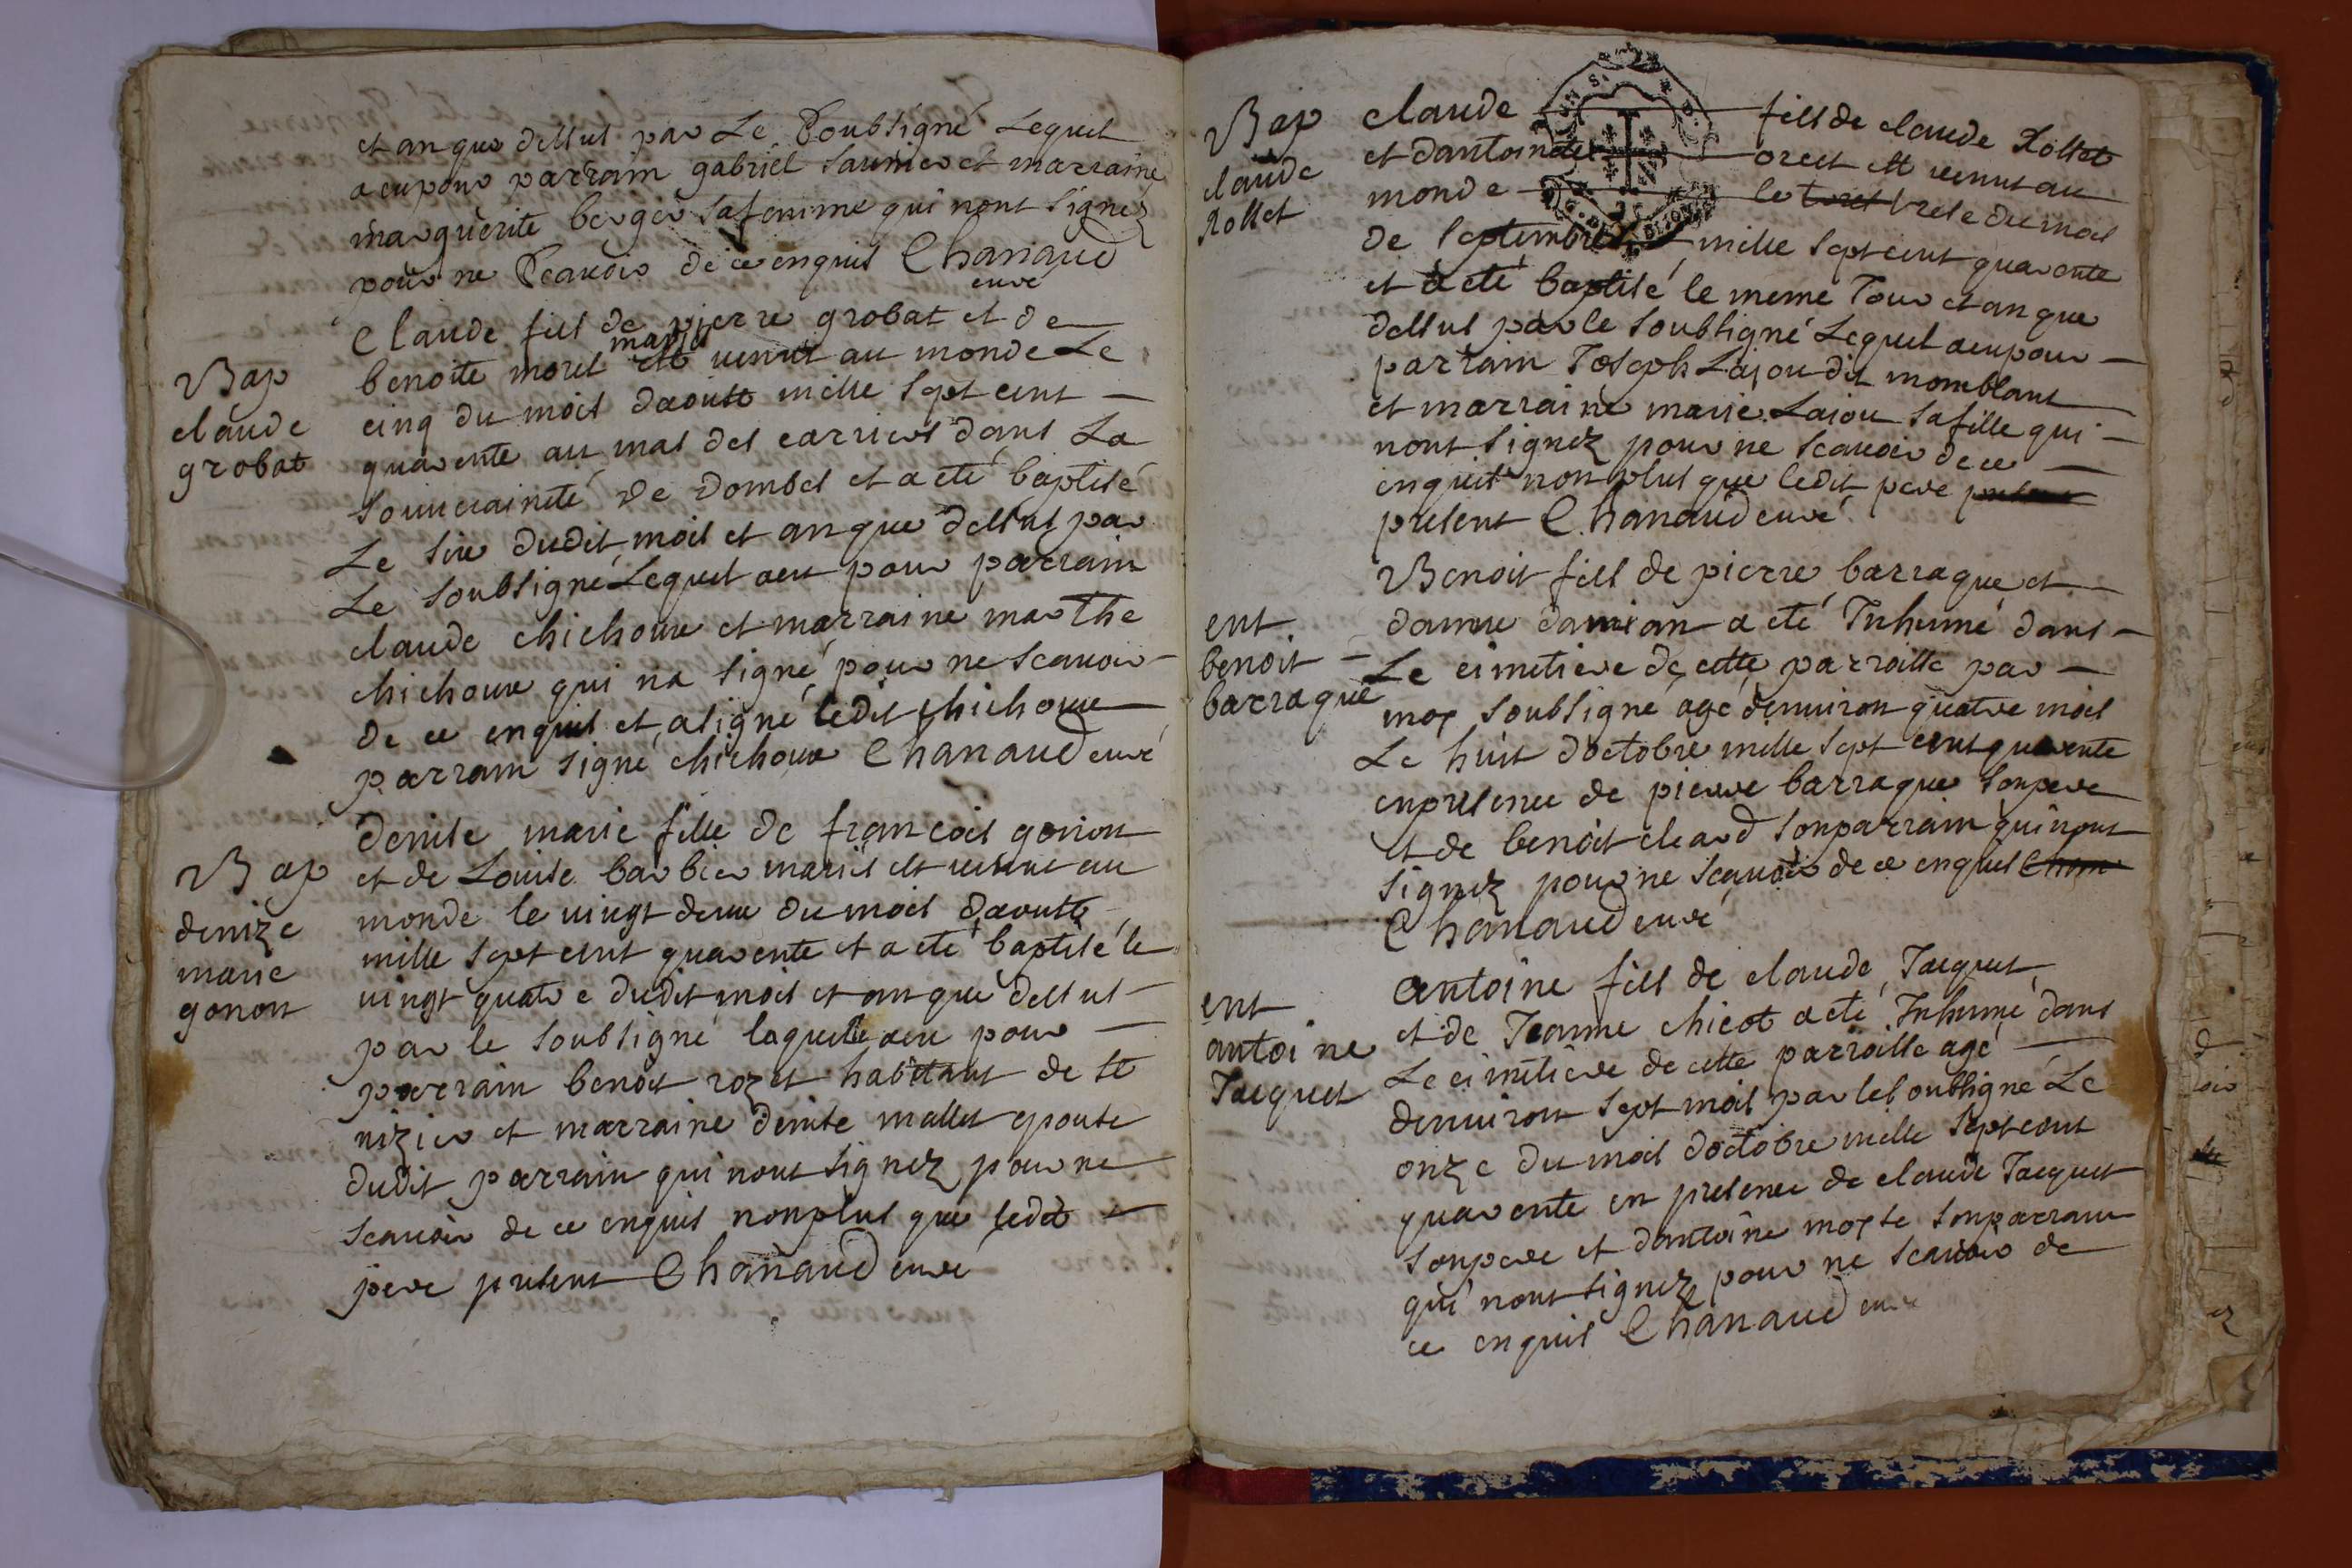 et an que dessus par Le Soubsigné Lequel
a eu pour parrain gabriel saunier et marraine
marguerite berger sa femme qui nont signez
pour ne Scavoir de ce enquis Chanaud
curé
Bap
claude
grobat
Claude fils de pierre grobat et de
benoite morel mariés est venu au monde Le
cinq du mois daoust mille sept cent
quarente au mas des carriers dans La
souveraineté de Dombes et a eté baptisé
Le six dudit mois et an que dessus par
Le soubsigné Lequel a eu pour parrain
claude chichoux et marraine marthe
chichoux qui na signé pour ne scavoir
de ce enquis et a signé ledit chichoux
parrain signé chichoux Chanaud curé
Bap
denize
marie
gonon
denise marie fille de francois gonon
et de Louise barbier mariés est venue au
monde le vingt deux du mois daoust
mille sept cent quarente et a eté baptisé le
vingt quatre dudit mois et an que dessus
par le soubsigné laquelle a eu pour
parrain benoit rozet habitant de st
nizier et marraine denise mallet epouse
dudit parrain qui nont signez pour ne
scavoir de ce enquis non plus que ledit
pere present Chanaud curé
Bap
claude
Rollet
claude fils de claude Rollet
et dantoinette est venu au
monde le trese du mois
de septembre mille sept cent quarente
et a eté baptisé le meme Jour et an que
dessus par le soubsigné Lequel a eu pour
parrain Joseph Lajou dit momblant
et marraine marie Lajou sa fille qui
nont signez pour ne scavoir de ce
enquis non plus que ledit pere
present Chanaud curé
ent
benoit
barraque
Benoit fils de pierre barraque et
danne damian a eté Inhumé dans
Le cimetiere de cette parroisse par
moy soubsigné agé denviron quatre mois
Le huit doctobre mille sept cent quarente
en presence de pierre barraque son pere
et de benoit cleard son parrain qui nont
signez pour ne scavoir de ce enquis
Chanaud curé
ent
antoine
Jacquet
antoine fils de claude Jacquet
et de Jeanne chicot a eté Inhumé dans
Le cimetiere de cette parroisse agé
denviron sept mois par le soubsigné Le
onze du mois doctobre mille sept cent
quarente en presence de claude Jacquet
son pere et dantoine moyse son parrain
qui nont signez pour ne scavoir de
ce enquis Chanaud curé